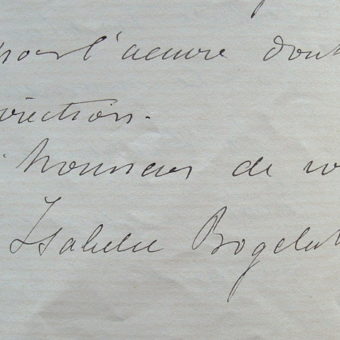 pour l'œuvre dont
direction.
l'honneur de vo
Isabelle Bogelot